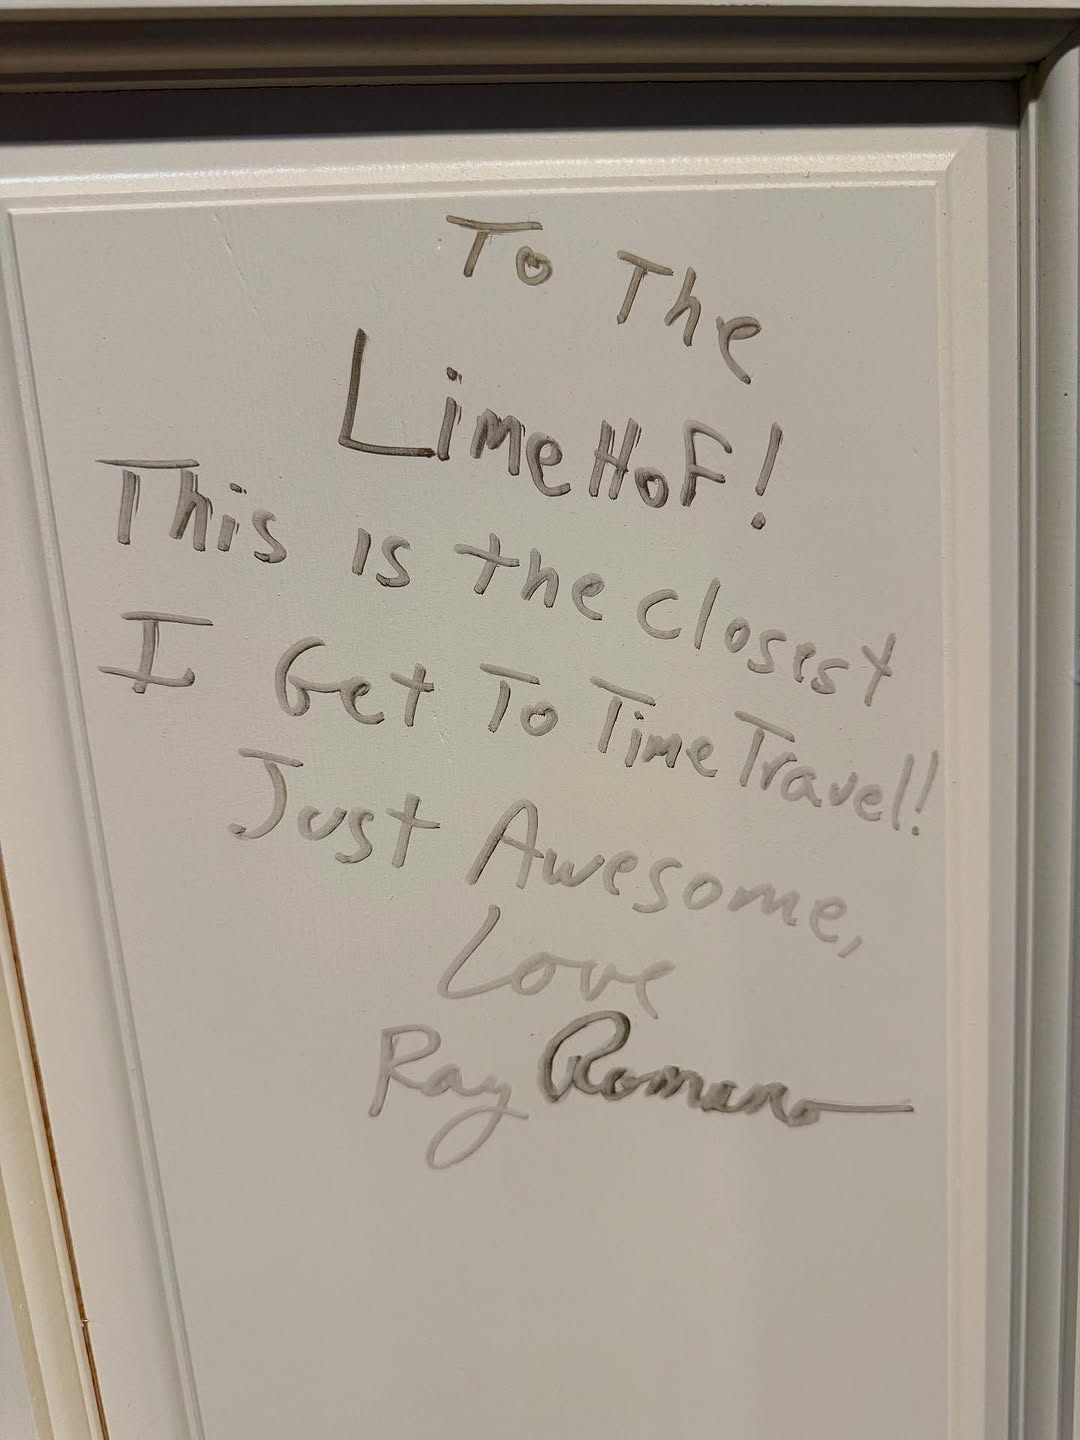 To The
LimeHoF!
This is the closest
I Get To Time Travel!
Just Awesome,
Love
Ray Romano